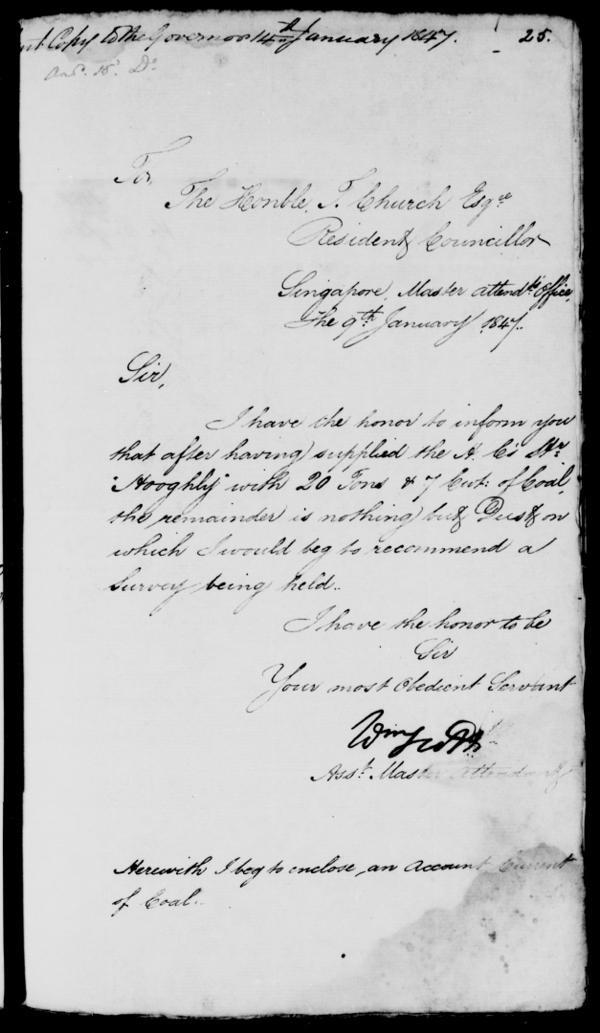 Copy to the Governor 14th January 1847. 25.
Ans. 15 Do
To,
The Honble. T. Church Esqre
Resident Councillor
Singapore, Master attendts Office,
The 9th January 1847.
Sir,
I have the honor to inform you
that after having supplied the H. C's Str.
"Hooghly" with 20 Tons & 7 Cwt: of Coal,
the remainder is nothing but Dust on
which I would beg to recommend a
Survey being held..
I have the honor to be
Sir
Your most obedient Servant
Wm Scott
Asst. Master Attendant
Herewith I beg to enclose, an Account Current
of Coal..